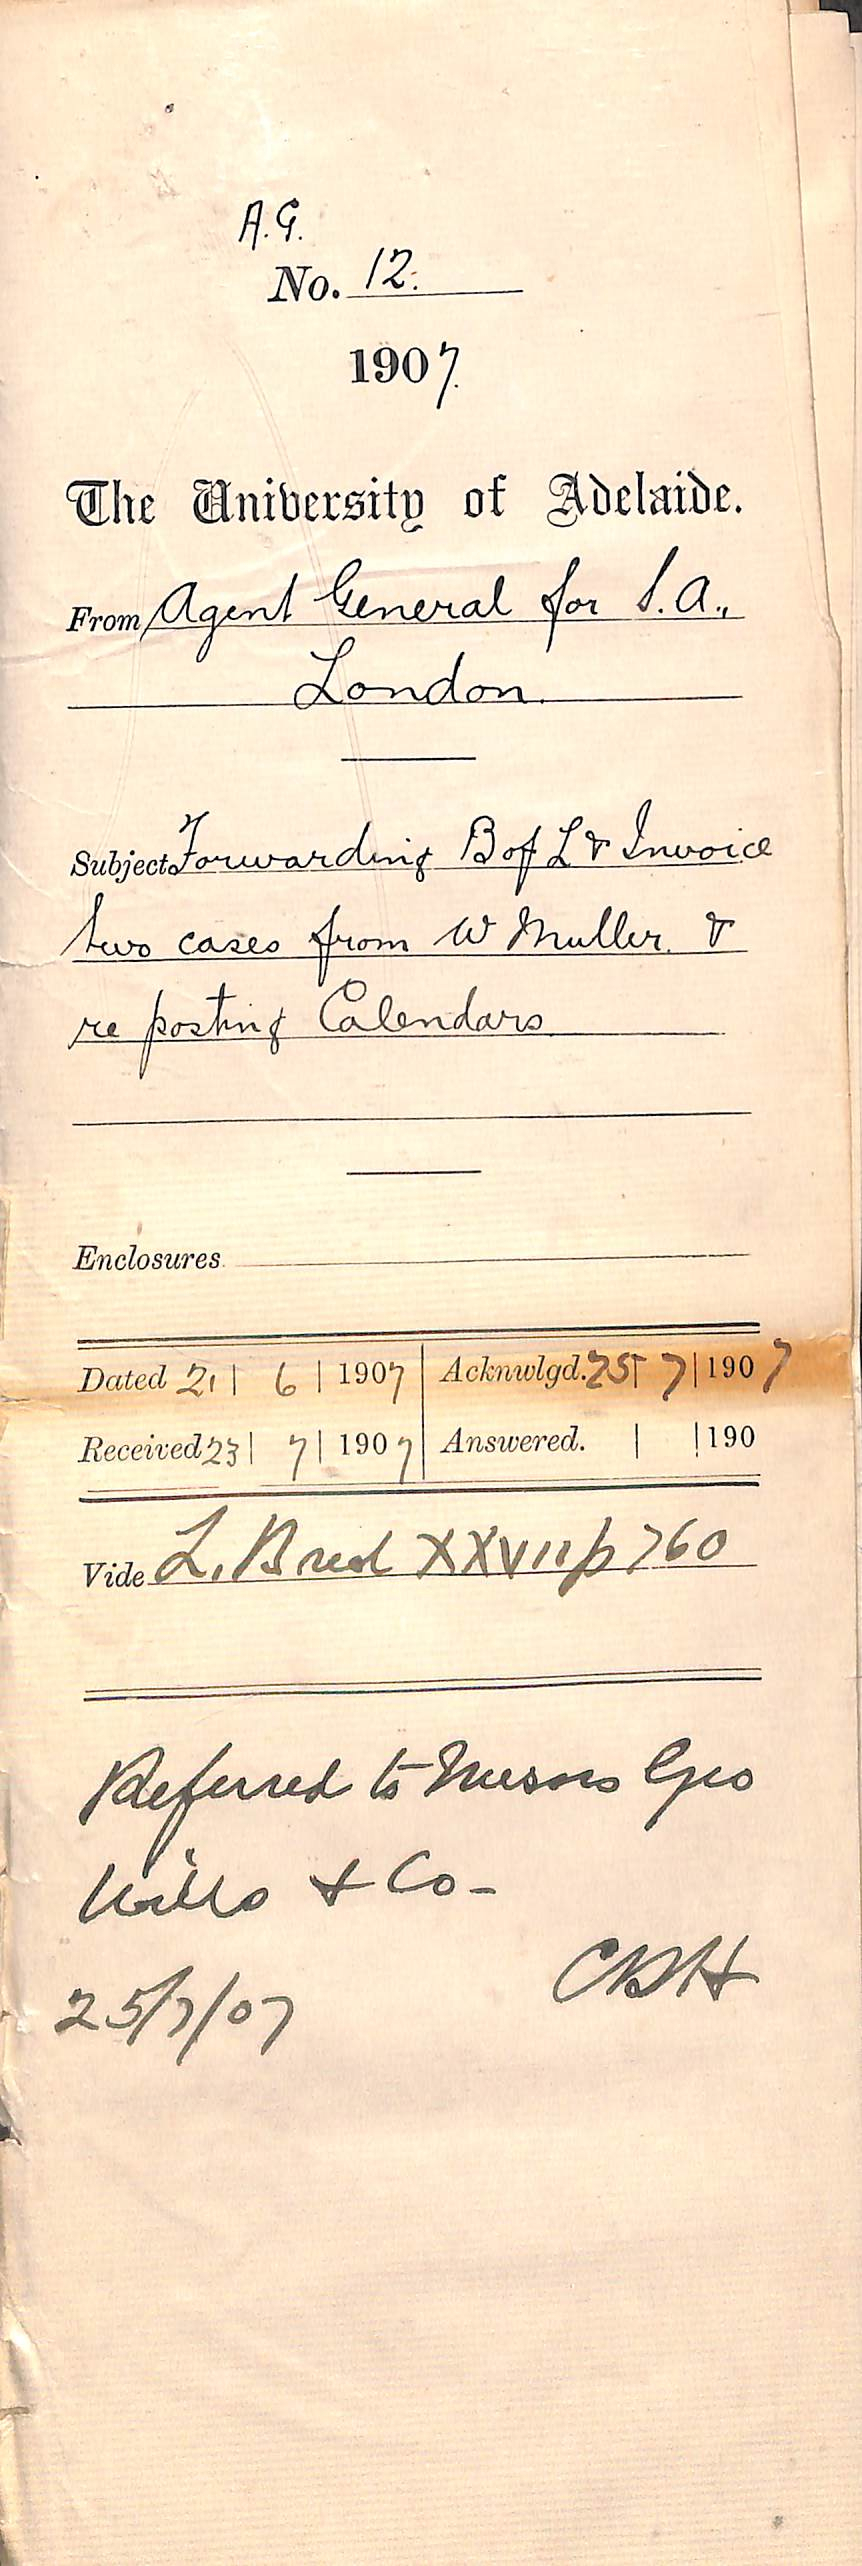 A.G.
No. 12.
1907.
The University of Adelaide.
From Agent General for S.A.,
London.
Subject Forwarding B of L & Invoice
two cases from W Muller. &
re posting Calendars
Enclosures
Dated 21 | 6 | 1907 Acknwlgd. 25 | 7 | 1907
Received 23 | 7 | 1907 Answered. | | 190
Vide L. XXVII p 760
Referred to Messrs Geo
Wills & Co -
25/7/07 CRH